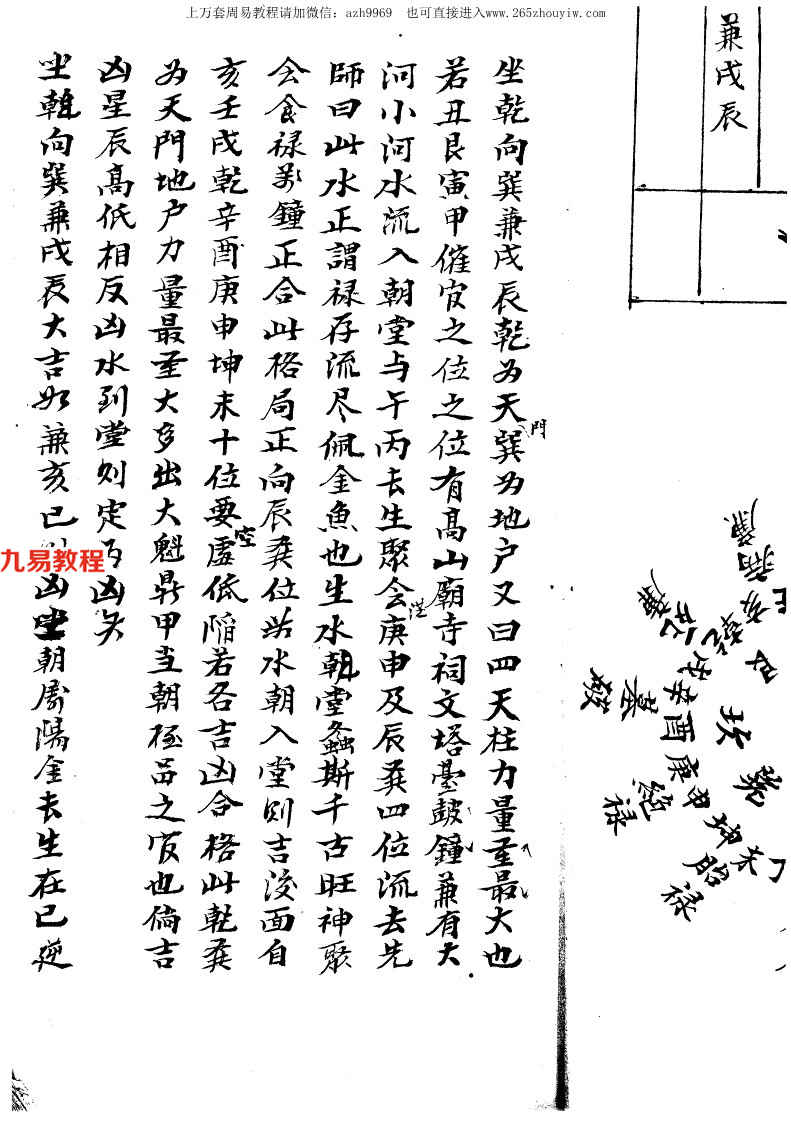 上万套周易教程请加微信：azh9969　也可直接进入www.265zhouyiw.com
兼戌辰
坐乾向巽兼戌辰乾为天門巽为地户又曰四天柱力量至最大也
若丑艮寅甲催官之位之位有高山廟寺祠文塔臺鼓鐘兼有大
河小河水流入朝堂与午丙去生聚会庚申及辰巽四位流去先
師曰此水正謂禄存流尽佩金魚也生水朝堂螽斯千古旺神聚
会食禄萬鐘正合此格局正向辰巽位皆水朝入堂则吉後面自
亥壬戌乾辛酉庚申坤未十位要虚空低陷若各吉凶合格此乾巽
为天門地户力量最至大多出大魁鼎甲当朝極品之官也倘吉
凶星辰高低相反凶水到堂则定为凶矣
坐乾向巽兼戌辰大吉如兼亥巳则凶坐朝属陽金長生在巳逆
九易教程
廉
亥
乾
戌
辛
酉
庚
申
坤
未
墓
絶
胎
禄
禄
坎